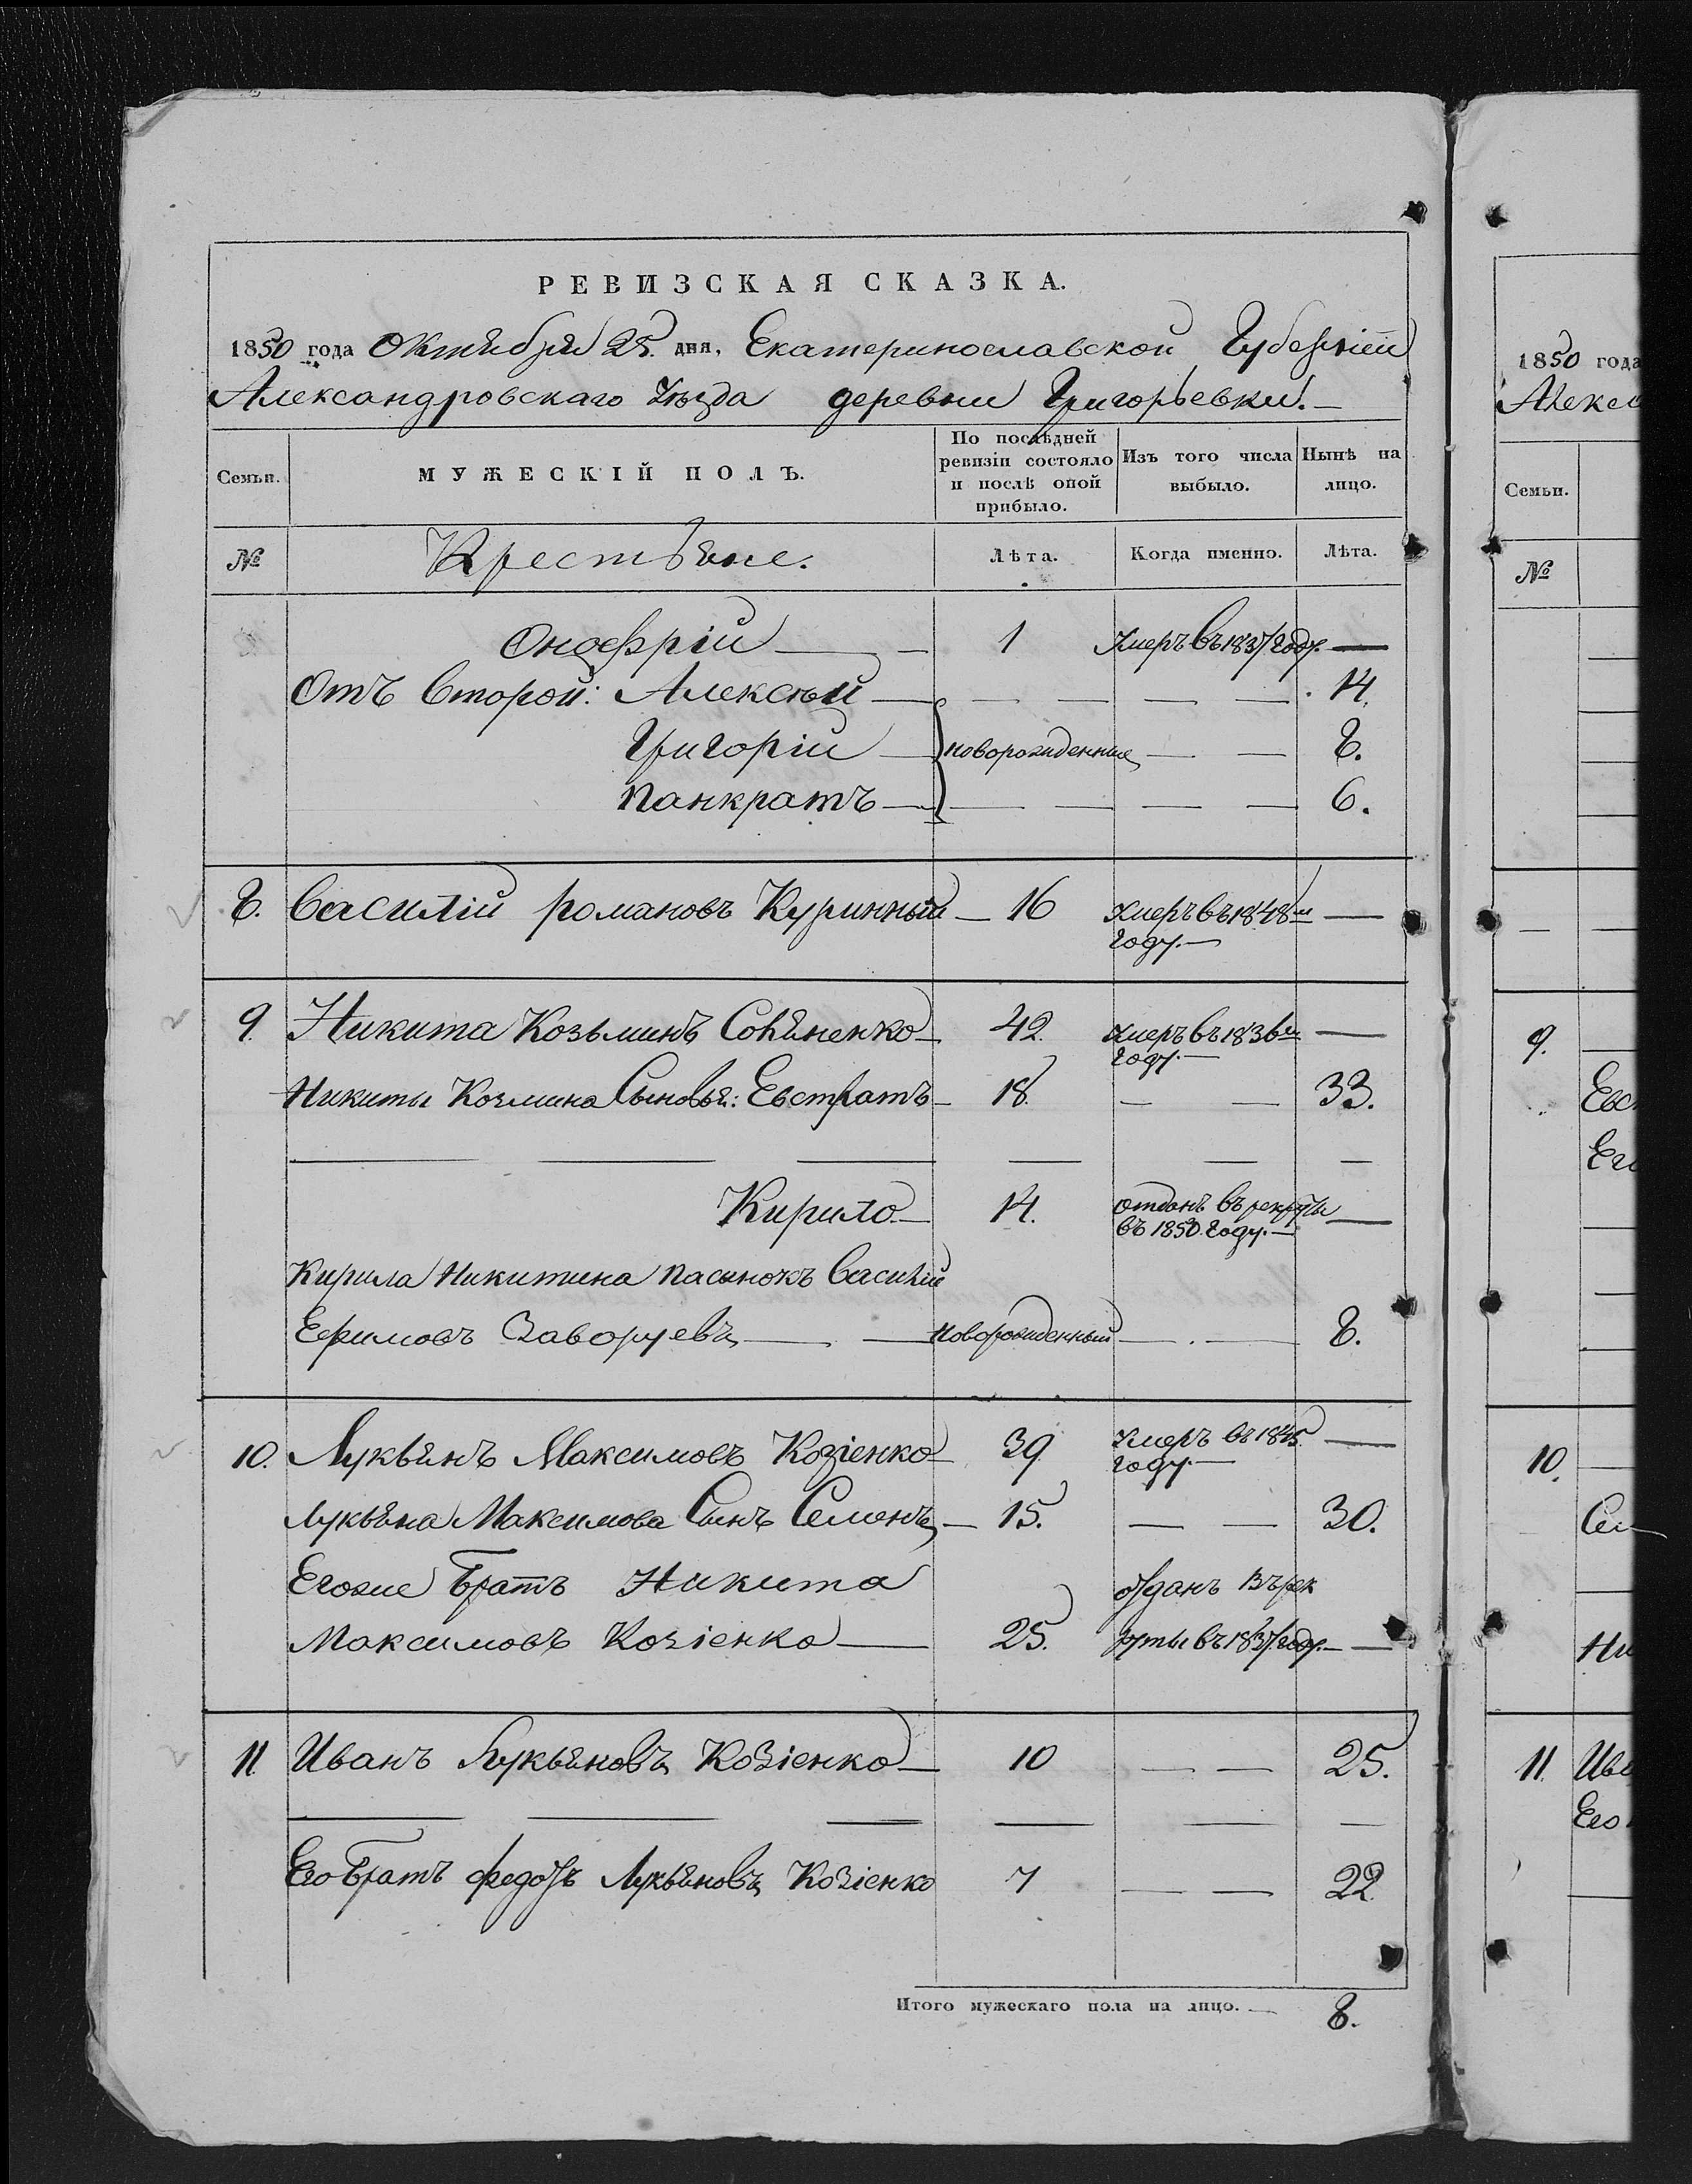 РЕВИЗСКАЯ СКАЗКА.
1850 года Октября 25. дня, Екатеринославской Губерніи
Александровскаго Уѣзда деревни Григорьевки.
Семьи.
МУЖЕСКІЙ ПОЛЪ.
По послѣдней ревизіи состояло и послѣ оной прибыло.
Изъ того числа выбыло.
Нынѣ на лицо.
№ Крестьяне. Лѣта. Когда именно. Лѣта.
Онофрій — 1 Умеръ въ 1837 году. —
Отъ второй: Алексѣй — — — — — 14.
Григорій — новорожденные — — 8.
Панкратъ — — — — — 6.
8. Василій романовъ Куринный — 16 Умеръ въ 1848м —
году. —
9. Никита Козьминъ — 42. Умеръ въ 1836м —
году. —
Никиты Козмина Сыновья: Евстратъ — 18. — — 33.
Кирило — 14. отданъ въ рекруты —
въ 1850 году. —
Кирила Никитина пасынокъ Василій
Ефимовъ Заворуевъ — — Новорожденный — — 8.
10. Лукьянъ Максимовъ Козіенко — 39 Умеръ въ 1845. —
году. —
Лукьяна Максимова Сынъ Семенъ — 15. — — 30.
Егоже Братъ Никита отданъ въ рек
Максимовъ Козіенко — 25. руты въ 1837 году. — —
11. Иванъ Лукьяновъ Козіенко — 10 — — 25.
Его Братъ Федоръ Лукьяновъ Козіенко 7 — — 22.
Итого мужескаго пола на лицо. — 8.
1850 года
Алекса
Семьи.
№
9.
Евс
Его
10.
Сем
Ни
11. Ива
Его